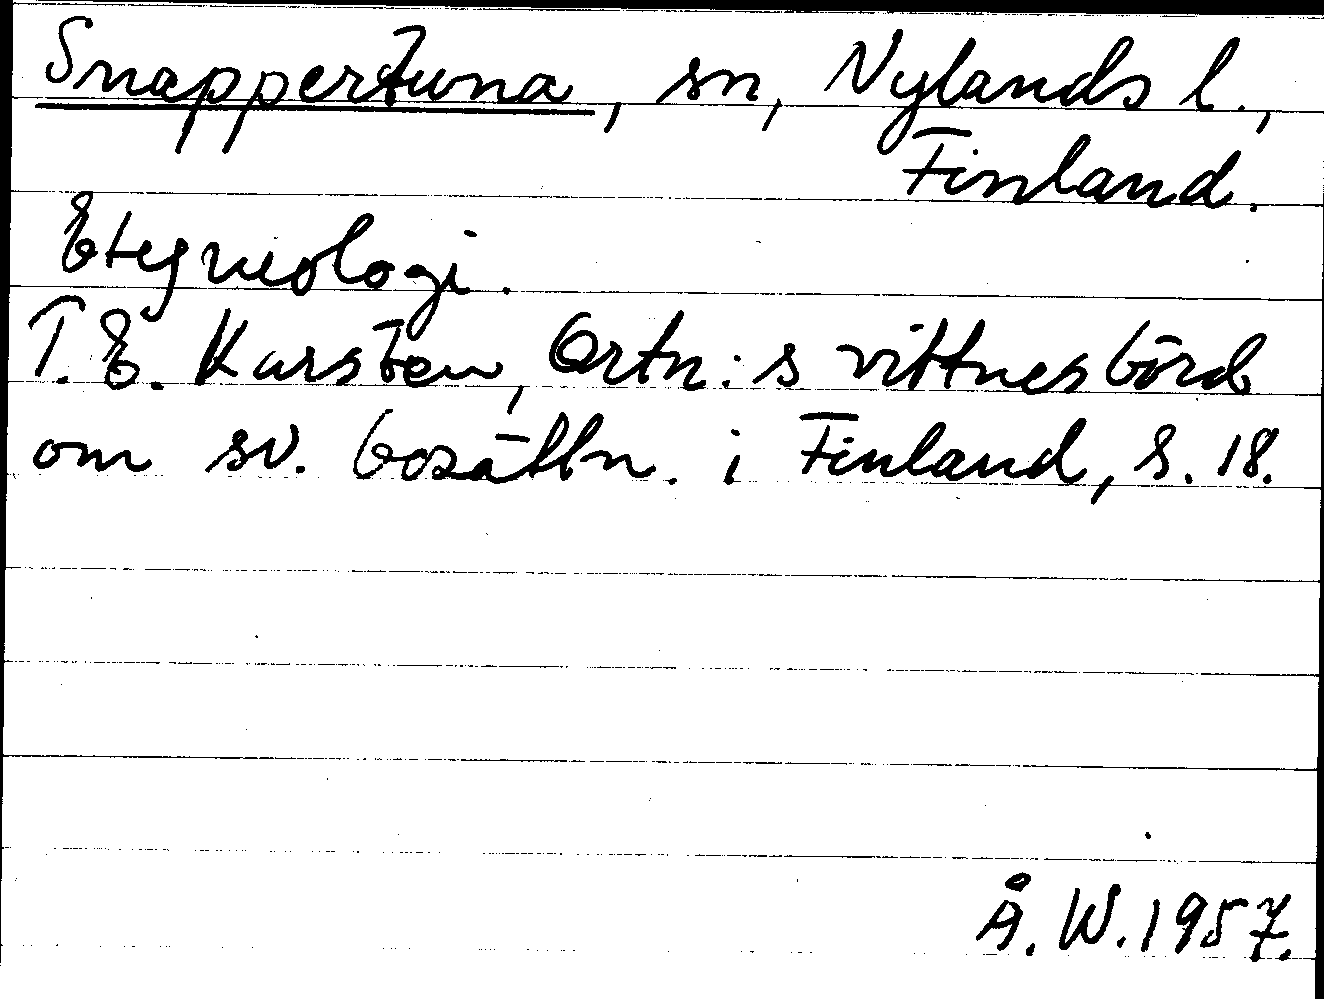 Snappertuna, sn, Nylands l.,
Finland.
Etymologi.
T. E. Karsten, Ortn:s vittnesbörd
om sv. bosättn. i Finland, s. 18.
Å. W. 1957.